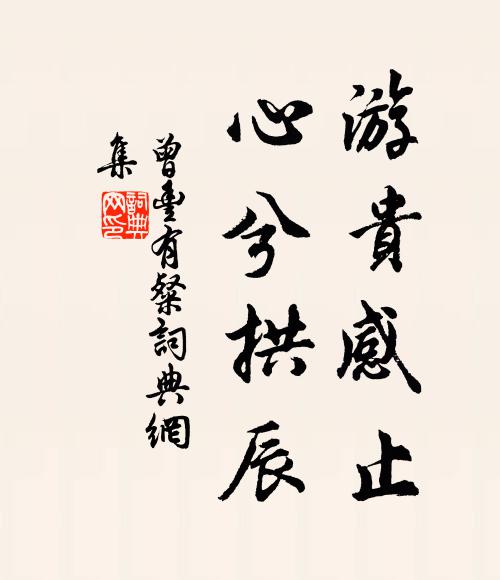 游貴感止
心兮拱辰
曾豐有粲詞典網
集
詞典
网印